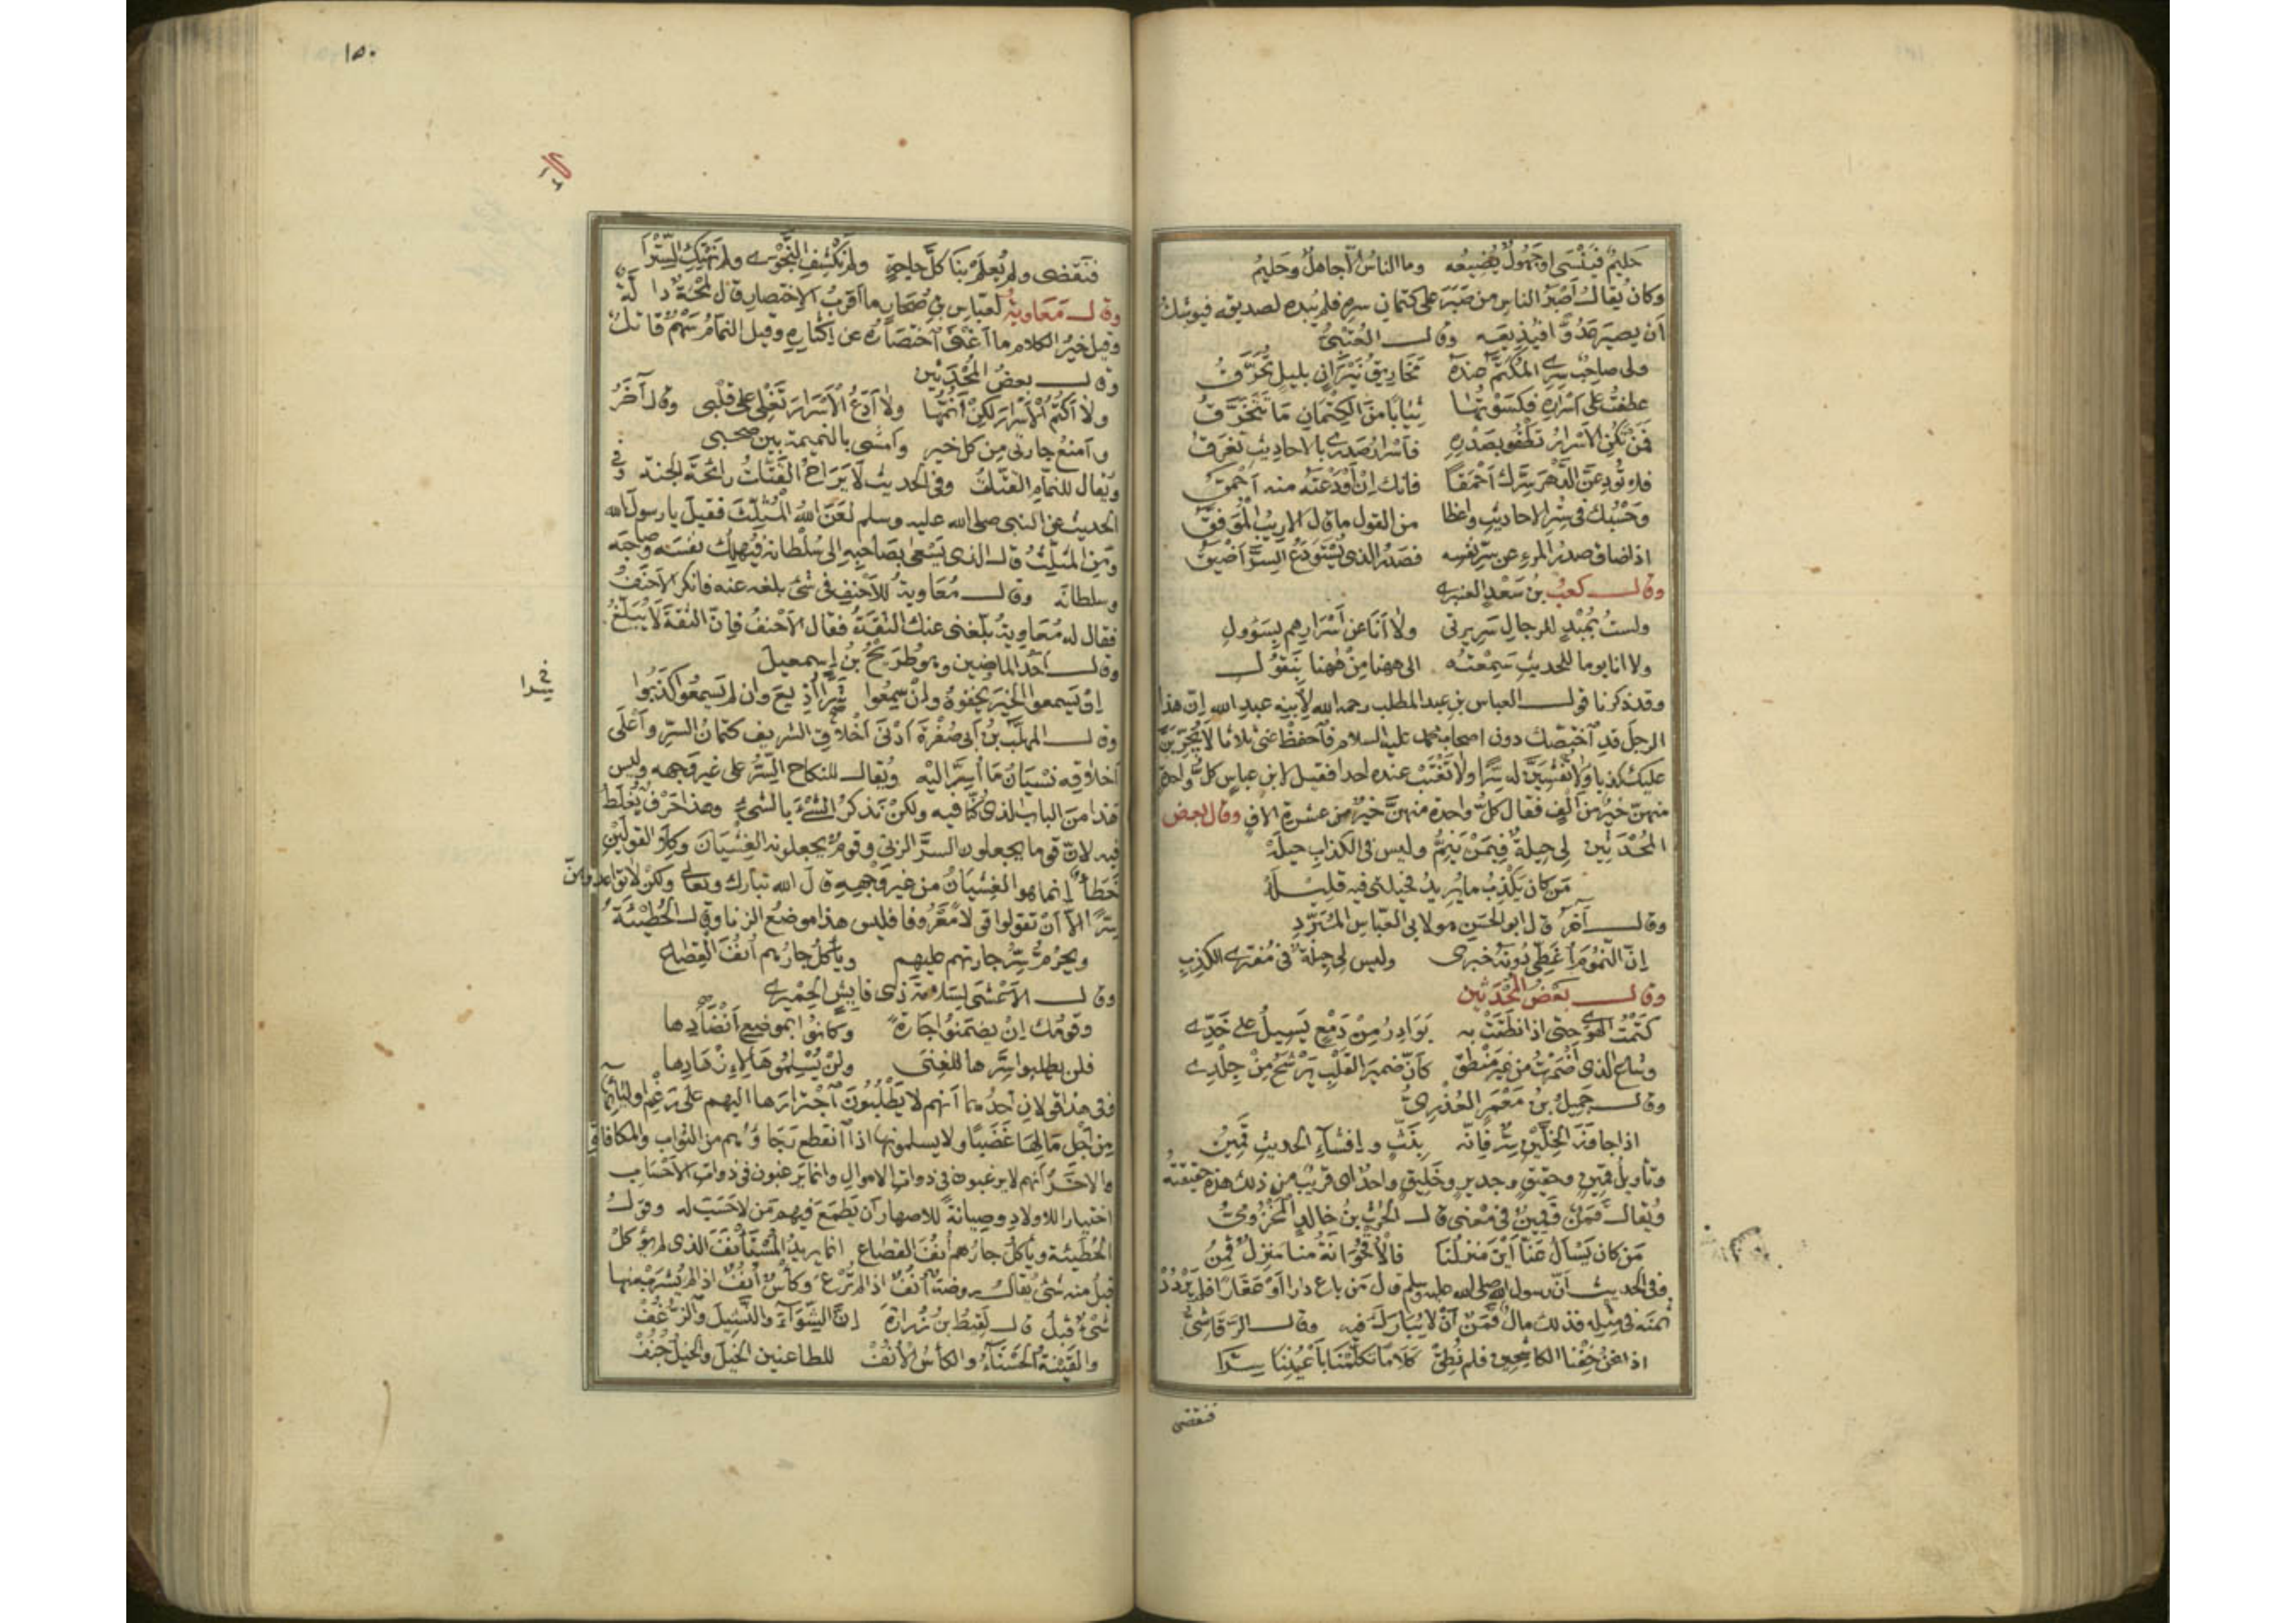 حَليمٌ فيَنْسَى او جَهُولٌ يُضِيعُه وما الناسُ الّا جاهلٌ وحَليمُ
وكان يُقالُ اَصْبَرُ الناسِ من صَبَرَ على كتمانِ سرهِ فلم يُبْدِه لصديقه فيوشكُ
اَن يصيرَ عَدُوًّا فيُذيعَه وقال العُتْبِيُّ
ولى صاحِبٌ سِرِّى المُكتَّمُ عندَهُ مَخَاريقُ نِيْرَانٍ بليلٍ تُحَرَّقُ
عطفتُ على اَسْرَاره فكسَوْتُها ثِيَابًا مِنَ الكِتْمَانِ مَا تَتَخَرَّقُ
فمَنْ تكُنِ الاَسْرَارُ تطْفُو بصَدْرِهِ فاَسْرارُ صَدْرى بالاحاديثِ تغرقُ
فلا تُودِعَنَّ الدَّهْرَ سِرَّكَ اَحْمَقًا فانك اِنْ اَوْدَعْتَه منه اَحْمَقُ
وحَسْبُكَ فى سَتْرِ الاحاديثِ واعظا من القول ما قال الاريبُ المُوَفَّقُ
اذا ضاق صدرُ المرءِ عن سِرّ نفسِه فصَدْرُ الذى يُسْتَوْدَعُ السِّرَّ اَضْيَقُ
وقال كعبُ بنُ سَعْدٍ الغنوى
ولستُ بمُبْدٍ للرجالِ سَريرتى ولا اَنَا عن اَسْرَارِهم بِسَؤُولِ
ولا انا يوما للحديثِ سَمِعْتُه الى هٰهنا مِنْ هٰهنا بنَقُولِ
وقد ذكرنا قول العباس بنِ عبد المطلب رحمه الله لاِبنِه عبدِ الله اِنّ هذا
الرجلَ قدِ اخْتصّك دون اصحاب محمد عليه السلام فاحفَظْ عنى ثلاثا لَا يُجَرِّبَنَّ
عليك كذبا ولَا تُفْشِيَنَّ له سِرًّا ولَا تَغْتَبْ عنده احدا فقيل لابن عباسٍ كلُّ واحدةٍ
منهنّ خيرٌ من اَلْفٍ فقال كلُّ واحدة منهنَّ خيرٌ من عشرة الافٍ وقال بعض
المُحْدَثِين لِى حِيلةٌ فيمَنْ يَنِمُّ وليس فى الكذابِ حِيلَهْ
مَن كان يَكْذِبُ ما يُريدُ فحيلتى فيه قليلَهْ
وقال آخر قال ابو الحَسَن هو لابى العبّاس المُبَرّدِ
اِنّ النَّمُومَ اُغَطِّى دُونَهُ خَبَرى وليس لِى حِيلةٌ فى مُفتَرى الكذِبِ
وقال بَعْضُ المُحْدَثين
كتَمْتُ الهوى حتى اذا نطَقَتْ به بَوَادِرُ مِنْ دَمْعٍ يَسِيلُ على خَدّى
وشاع الذى اَضْمَرْتُ من غيرِ مَنْطِقٍ كاَنّ ضميرَ القَلْبِ يَرْشَحُ مِنْ جِلْدى
وقال جَميلُ بنُ مَعْمَرٍ العُذْرِىُّ
اذا جاوَزَ الخِلَّيْنِ سِرٌّ فَاِنّه بِنَثٍّ واِفشآءِ الحديثِ قَمينُ
وتأويلُ قمينٍ وحقيقٍ وجديرٍ وخَليقٍ واحدٌ اى قريبٌ من ذلك هذه حقيقتُه
ويُقالُ قَمَنٌ وقَمِنٌ فى مَعْنى قال الحرثُ بنُ خالدٍ المَخْزُومىُّ
مَن كان يَسْأل عَنّا اَيْنَ مَنْزلُنا فالاُقْحُوَانَةُ منا منزلٌ قَمِنُ
وفى الحديث اَنّ رسول الله صلى الله عليه وسلم قال مَن باع دارًا اَوْ عَقَارًا فلم يَرْدُدْ
ثمنَه فى مثلِه فذلك مالٌ قَمَنٌ اَنْ لا يُبَارَكَ فيه وقال الرَّقَاشِىُّ
اذا نحنُ خِفْنا الكاشِحِينَ فلم نُطِقْ كلَامًا تكلَّمْنَا بِاَعْيُنِنَا سِرَّا
فنقضى
١٥٠
فنَقْضى ولم يُعلَمْ بنَا كلَّ حاجةٍ ولم نَكْشِفِ النَّجْوى ولم نَهْتِكِ السِّتْرَا
وقال مَعَاويةُ لعبّاسِ بنِ صُحَارٍ ما اَقرَبُ الاختصارِ قال لمحَةٌ دالّةٌ
وقيل خيرُ الكلام ما اَغْنَى اخْتصَارُه عن اِكْثاره وقيل النمّامُ سَهْمٌ قاتلٌ
وقال بعضُ المُحْدَثين
ولا اَكتُمُ الاَسْرارَ لكِنْ اَنُمُّهَا ولَا اَدَعُ الاَسْرَارَ تَغْلِى على قلْبى وقال آخَرُ
واَمنَعُ جارتى مِن كلّ خيرٍ واَمْشى بالنميمةِ بين صحبى
ويُقال للنمّام القتّاتُ وفى الحديث لَا يَرَاحُ القَتّاتُ رائحَةَ الجنة وفى
الحديث عن النبى صلى الله عليه وسلم لعَنَ اللهُ المُثَلِّثَ فقيل يا رسول الله
ومَنِ المُثَلِّثُ قال الذى يَسْعَى بصَاحِبِه اِلى سُلْطانه فيُهلِكُ نفسَه وصاحِبَه
وسلطانَه وقال مُعَاويةُ للاَحْنفِ فى شئ بلغه عنه فانكر الاَحْنَفُ
فقال له مُعَاويةُ بلّغنى عنك الثقَةُ فقال الاَحْنفُ فاِنّ الثقةَ لَا يُبَلّغُ
وقال اَحَدُ الماضِين وهو طُرَيْحُ بنُ اِسمعيلَ
اِنْ يَسمعوا الخيرَ يُخفوهُ واِنْ سمِعُوا شرًّا اُذِيعَ وان لم يَسمعُوا كذبوا
وقال المهلَّبُ بنُ اَبى صُفْرةَ اَدْنَى اَخْلَاقِ الشريفِ كتمانُ السّرِّ واَعْلَى
اَخلاقِه نسْيَانُ مَا اُسِرَّ اليْه ويُقال للنكاحِ السِّرُّ على غيرِ وَجهِه وليس
هٰذا مِنَ البابِ الذى كنّا فيه ولكنْ نَذْكرُ الشئَ بالشئ وهذا حَرْفٌ يُغْلَطُ
فيه لانّ قوما يجعلون السرَّ الزنى وقومٌ يجعلونه الغِشْيَانَ وكِلَا القولَيْنِ
خَطأٌ اِنما هو الغِشيَانُ من غيرِ وَجْهِهِ قال الله تبارك وتعالى ولكنْ لا تواعدوهنّ
سِرًّا الّا اَنْ تقولوا قولًا مَّعْرُوفا فليس هذا موضعَ الزنا وقال الحُطَيْئَةُ
ويحرُمُ سِرُّ جارتهم عليهم ويأكلُ جارُهم اُنُفَ القِصَاعِ
وقال الاَعْشَى لسَلَامةَ ذى فايِشٍ الحِمْيَرى
وقومُك اِنْ يضمَنُوا جارةً وكانُوا بموضِعِ اَنْضَادِها
فلن يطلبوا سِرَّها للغِنَى ولَنْ يُسْلِمُوهَا لاِزْهَادِها
ففى هذا قولان اَحدُهما اَنهم لا يَطلُبُونَ اجْترَارَها اليهم على رَغْمِ اَوليائها
مِن اَجْلِ مَالِهَا غَصْبًا ولا يسلمونها اذا انقطع رَجَاؤُهم من الثوابِ والمكافاةِ
والاخَرُ اَنهم لا يرغبون فى ذواتِ الاموالِ وانما يَرغبون فى ذواتِ الاَحْسَابِ
اختيارًا للاولادِ وصِيانةً للاصهارِ اَن يَطمَعَ فيهم مَن لا حَسَبَ له وقول
الحُطَيْئَة ويأكلُ جارُهم اُنُفَ القصَاعِ انما يريدُ المُسْتَأْنَفَ الذى لم يُؤكلْ
قبلُ منه شئٌ يُقال روضةٌ اُنُفٌ اذا لم تُرْعَ وكأسٌ اُنُفٌ اذا لم يُشرَبْ منها
شئٌ قبلُ قال لَقيطُ بن زُرارَةَ اِنَّ الشِّوَآءَ والنَّشيلَ والرُّغُفْ
والقَيْنةَ الحَسْنَآءَ والكأسَ الاُنُفْ للطاعنين الخيلَ والخيلُ خُنُفْ